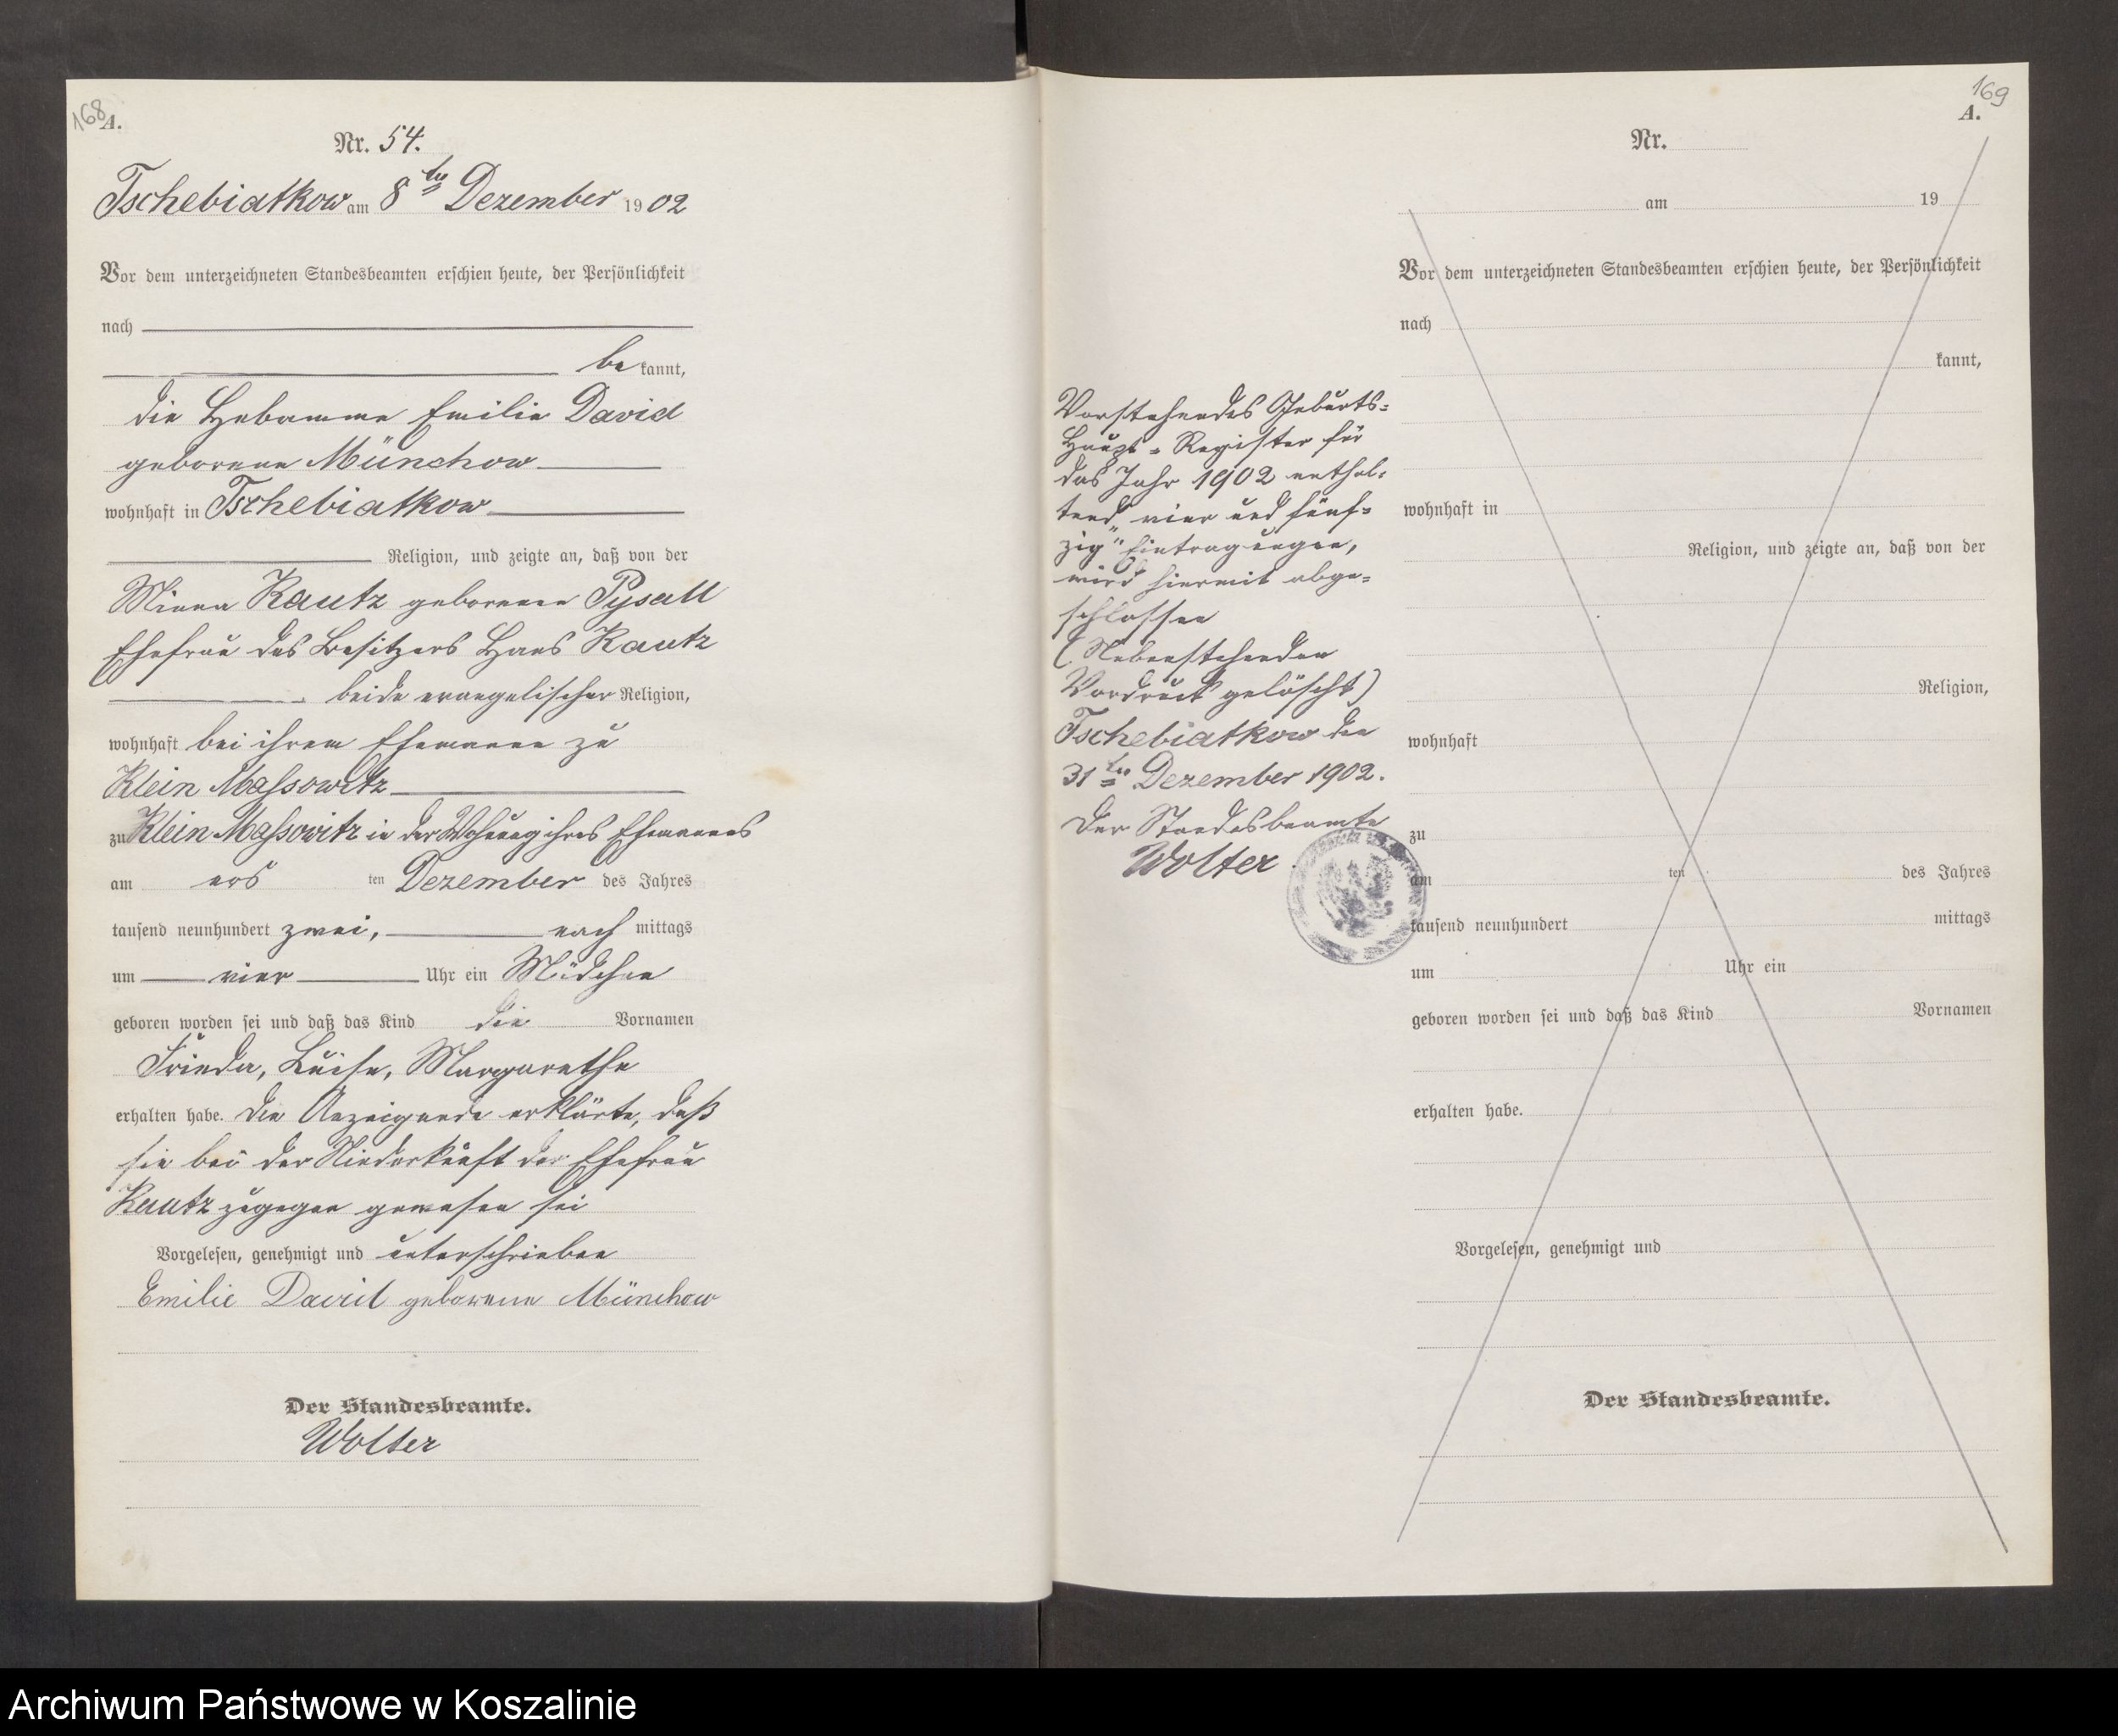 168
A.
Nr. 54.
Tschebiatkow am 8ten Dezember 1902
Vor dem unterzeichneten Standesbeamten erschien heute, der Persönlichkeit
nach
bekannt,
die Hebamme Emilie David
geborene Münchow
wohnhaft in Tschebiatkow
Religion, und zeigte an, daß von der
Minna Kautz geborenen Pysall
Ehefrau des Besitzers Hans Kautz
beide evangelischer Religion,
wohnhaft bei ihrem Ehemanne zu
Klein Massowitz
zu Klein Massowitz in der Wohnung ihres Ehemannes
am ersten Dezember des Jahres
tausend neunhundert zwei, nachmittags
um vier Uhr ein Mädchen
geboren worden sei und daß das Kind die Vornamen
Frieda, Luise, Margarethe
erhalten habe. Die Anzeigende erklärte, daß
sie bei der Niederkunft der Ehefrau
Kautz zugegen gewesen sei
Vorgelesen, genehmigt und unterschrieben
Emilie David geborene Münchow
Der Standesbeamte.
Wolter
Vorstehendes Geburts-
Haupt-Register für
das Jahr 1902 enthal-
tend „vier und fünf-
zig" Eintragungen,
wird hiermit abge-
schlossen
(Nebenstehender
Vordruck gelöscht)
Tschebiatkow den
31ten Dezember 1902.
Der Standesbeamte
Wolter
169
A.
Nr.
am 19
Vor dem unterzeichneten Standesbeamten erschien heute, der Persönlichkeit
nach
kannt,
wohnhaft in
Religion, und zeigte an, daß von der
Religion,
wohnhaft
zu
am ten des Jahres
tausend neunhundert mittags
um Uhr ein
geboren worden sei und daß das Kind Vornamen
erhalten habe.
Vorgelesen, genehmigt und
Der Standesbeamte.
Archiwum Państwowe w Koszalinie